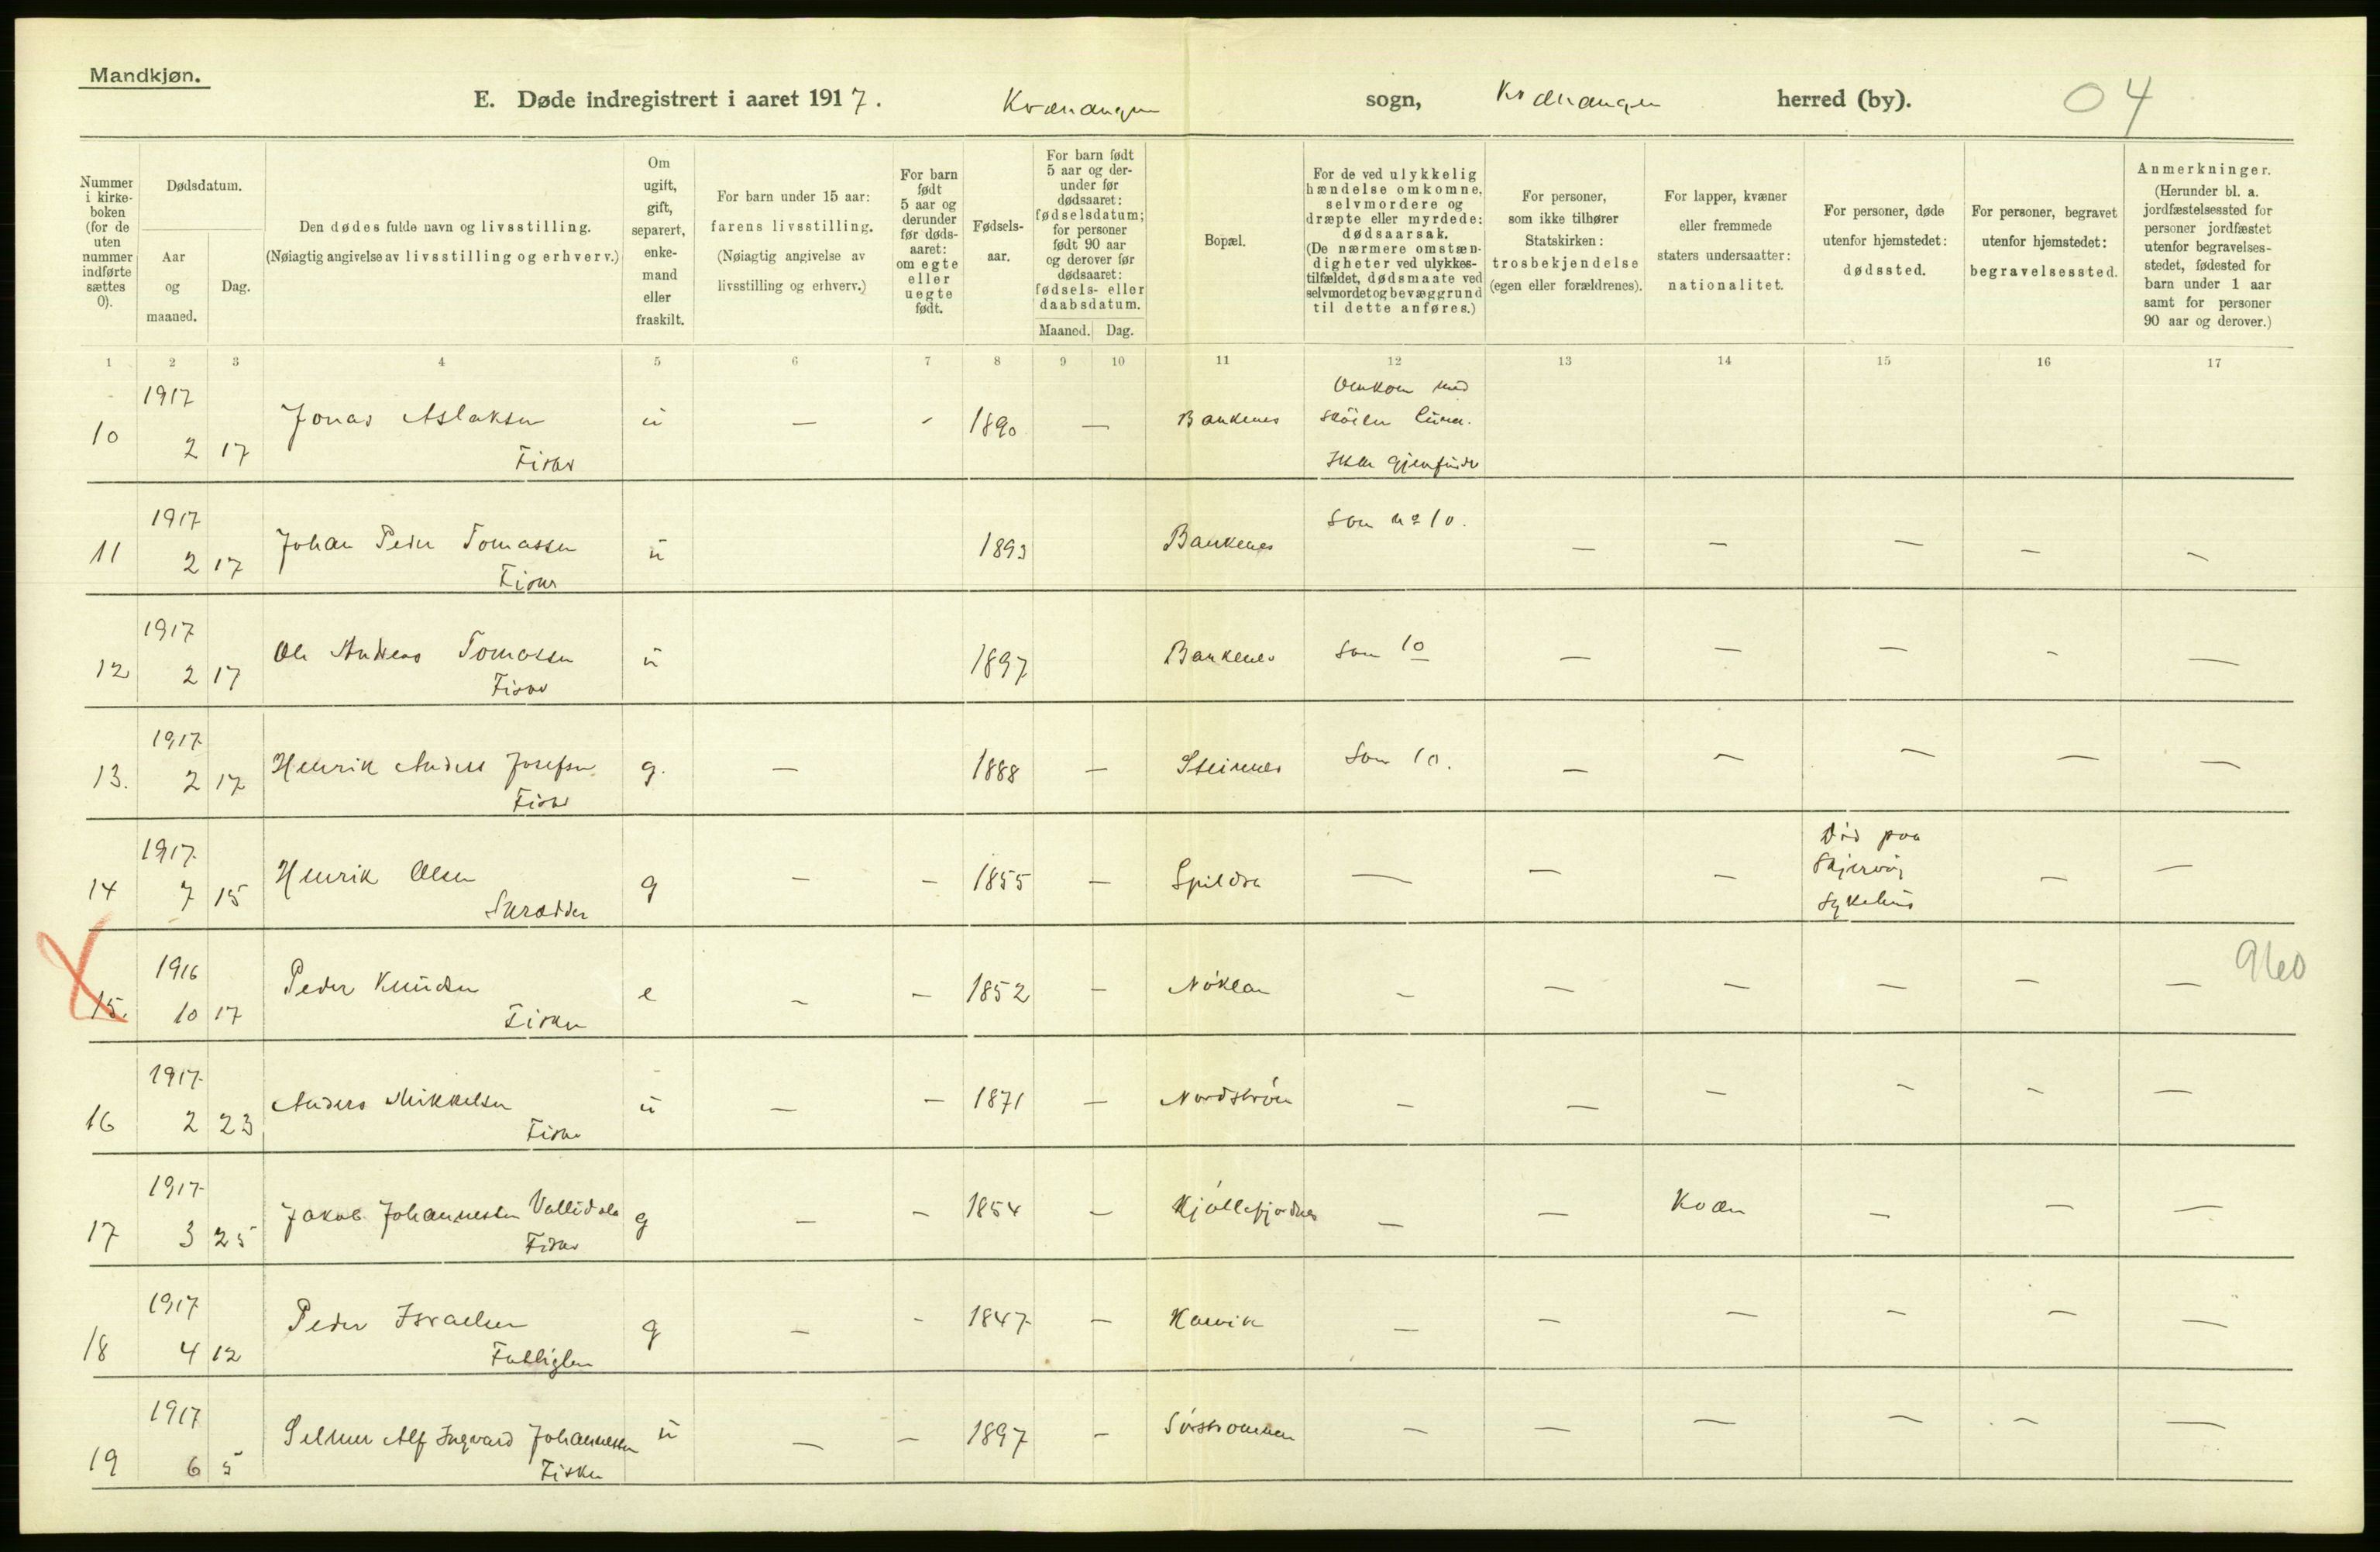 Mandkjøn.
E. Døde indregistrert i aaret 1917. Kvænangen sogn, Kvænangen herred (by). 04
Nummer i kirke-boken (for de uten nummer indførte sættes 0).
Dødsdatum.
Aar og maaned.
Dag.
Den dødes fulde navn og livsstilling.
(Nøiagtig angivelse av livsstilling og erhverv.)
Om ugift, gift, separert, enke-mand eller fraskilt.
For barn under 15 aar:
farens livsstilling.
(Nøiagtig angivelse av livsstilling og erhverv.)
For barn født 5 aar og derunder før døds-aaret: om egte eller uegte født.
Fødsels-aar.
For barn født 5 aar og der-under før dødsaaret: fødselsdatum; for personer født 90 aar og derover før dødsaaret: fødsels- eller daabsdatum.
Maaned. Dag.
Bopæl.
For de ved ulykkelig hændelse omkomne, selvmordere og dræpte eller myrdede: dødsaarsak.
(De nærmere omstæn-digheter ved ulykkes-tilfældet, dødsmaate ved selvmordet og bevæggrund til dette anføres.)
For personer, som ikke tilhører Statskirken: trosbekjendelse (egen eller forældrenes).
For lapper, kvæner eller fremmede staters undersaatter: nationalitet.
For personer, døde utenfor hjemstedet: dødssted.
For personer, begravet utenfor hjemstedet: begravelsessted.
Anmerkninger.
(Herunder bl. a. jordfæstelsessted for personer jordfæstet utenfor begravelses-stedet, fødested for barn under 1 aar samt for personer 90 aar og derover.)
1 2 3 4 5 6 7 8 9 10 11 12 13 14 15 16 17
10 1917 2 17 Jonas Aslaksen Fisker u — - 1890 — Bankenes Omkom med skøiten Ikke gjenfundet
11 1917 2 17 Johan Peder Tomassen Fisker u 1893 Bankenes Som no 10. — — — — —
12 1917 2 17 Ole Andreas Tomassen Fisker u 1897 Bankenes Som 10 — — — - —
13. 1917 2 17 Henrik Anders Josefsen Fisker g. — 1888 — Steinnes Som 10. — — — — —
14 1917 7 15 Henrik Olsen Skrædder g — — 1855 — Spildra — — — Død paa Skjervøy Sykehus — —
15. 1916 10 17 Peder Knudsen Fisker e — — 1852 — Nøklan — — — — — — 960
16 1917 2 23 Anders Mikkelsen Fisker u — — 1871 — Nordstrøm — — — — — —
17 1917 3 25 Jakob Johannessen Fisker g — — 1854 — Kjøllefjordnes — — Kvæn — — —
18 1917 4 12 Peder Israelsen g — - 1847 — — — — — — —
19 1917 6 5 Selmer Alf Ingvard Johannessen Fisker u — — 1897 — Sørstrommen — — — — — —